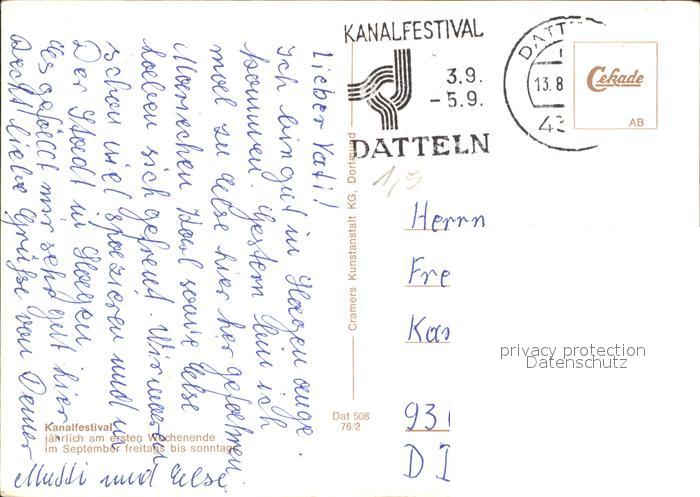 KANALFESTIVAL
3.9.
- 5.9.
DATTELN
DATT
13.8
43
Cekade
AB
1,5
Lieber Vati!
Ich bin gut in Hagen ange-
kommen. Gestern bin ich
mal zu Else hier her gefahren.
Mariechen Karl sowie Else
haben sich gefreut. Wir waren
schon viel spazieren und in
Der Stadt in Hagen
des gefällt mir sehr gut hier.
Recht liebe Grüße von Deiner
Mutti und Else.
Cramers Kunstanstalt KG, Dortmund
Dat 508
76/2
Herrn
Fre
Kas
93
D I
privacy protection
Datenschutz
Kanalfestival
jährlich am ersten Wochenende
im September freitags bis sonntags